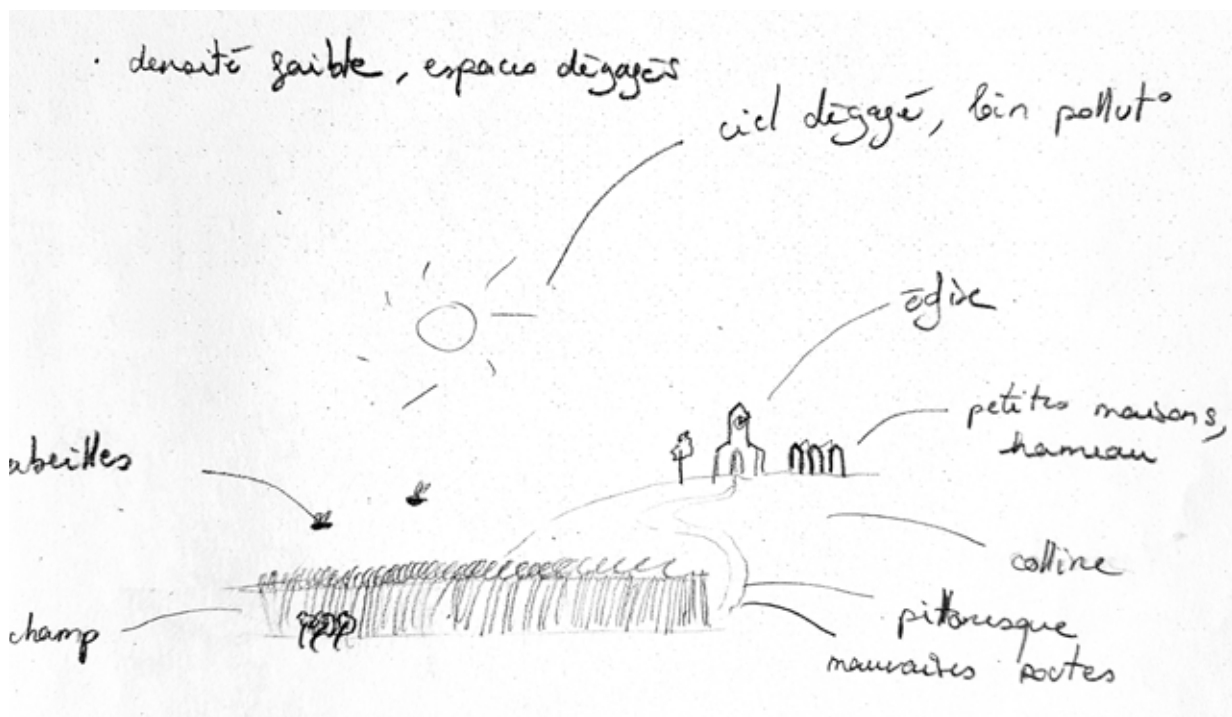 . densité faible, espaces dégagés
ciel dégagé, loin pollut°
église
petites maisons,
hameau
abeilles
colline
champ
pittoresque
mauvaises routes